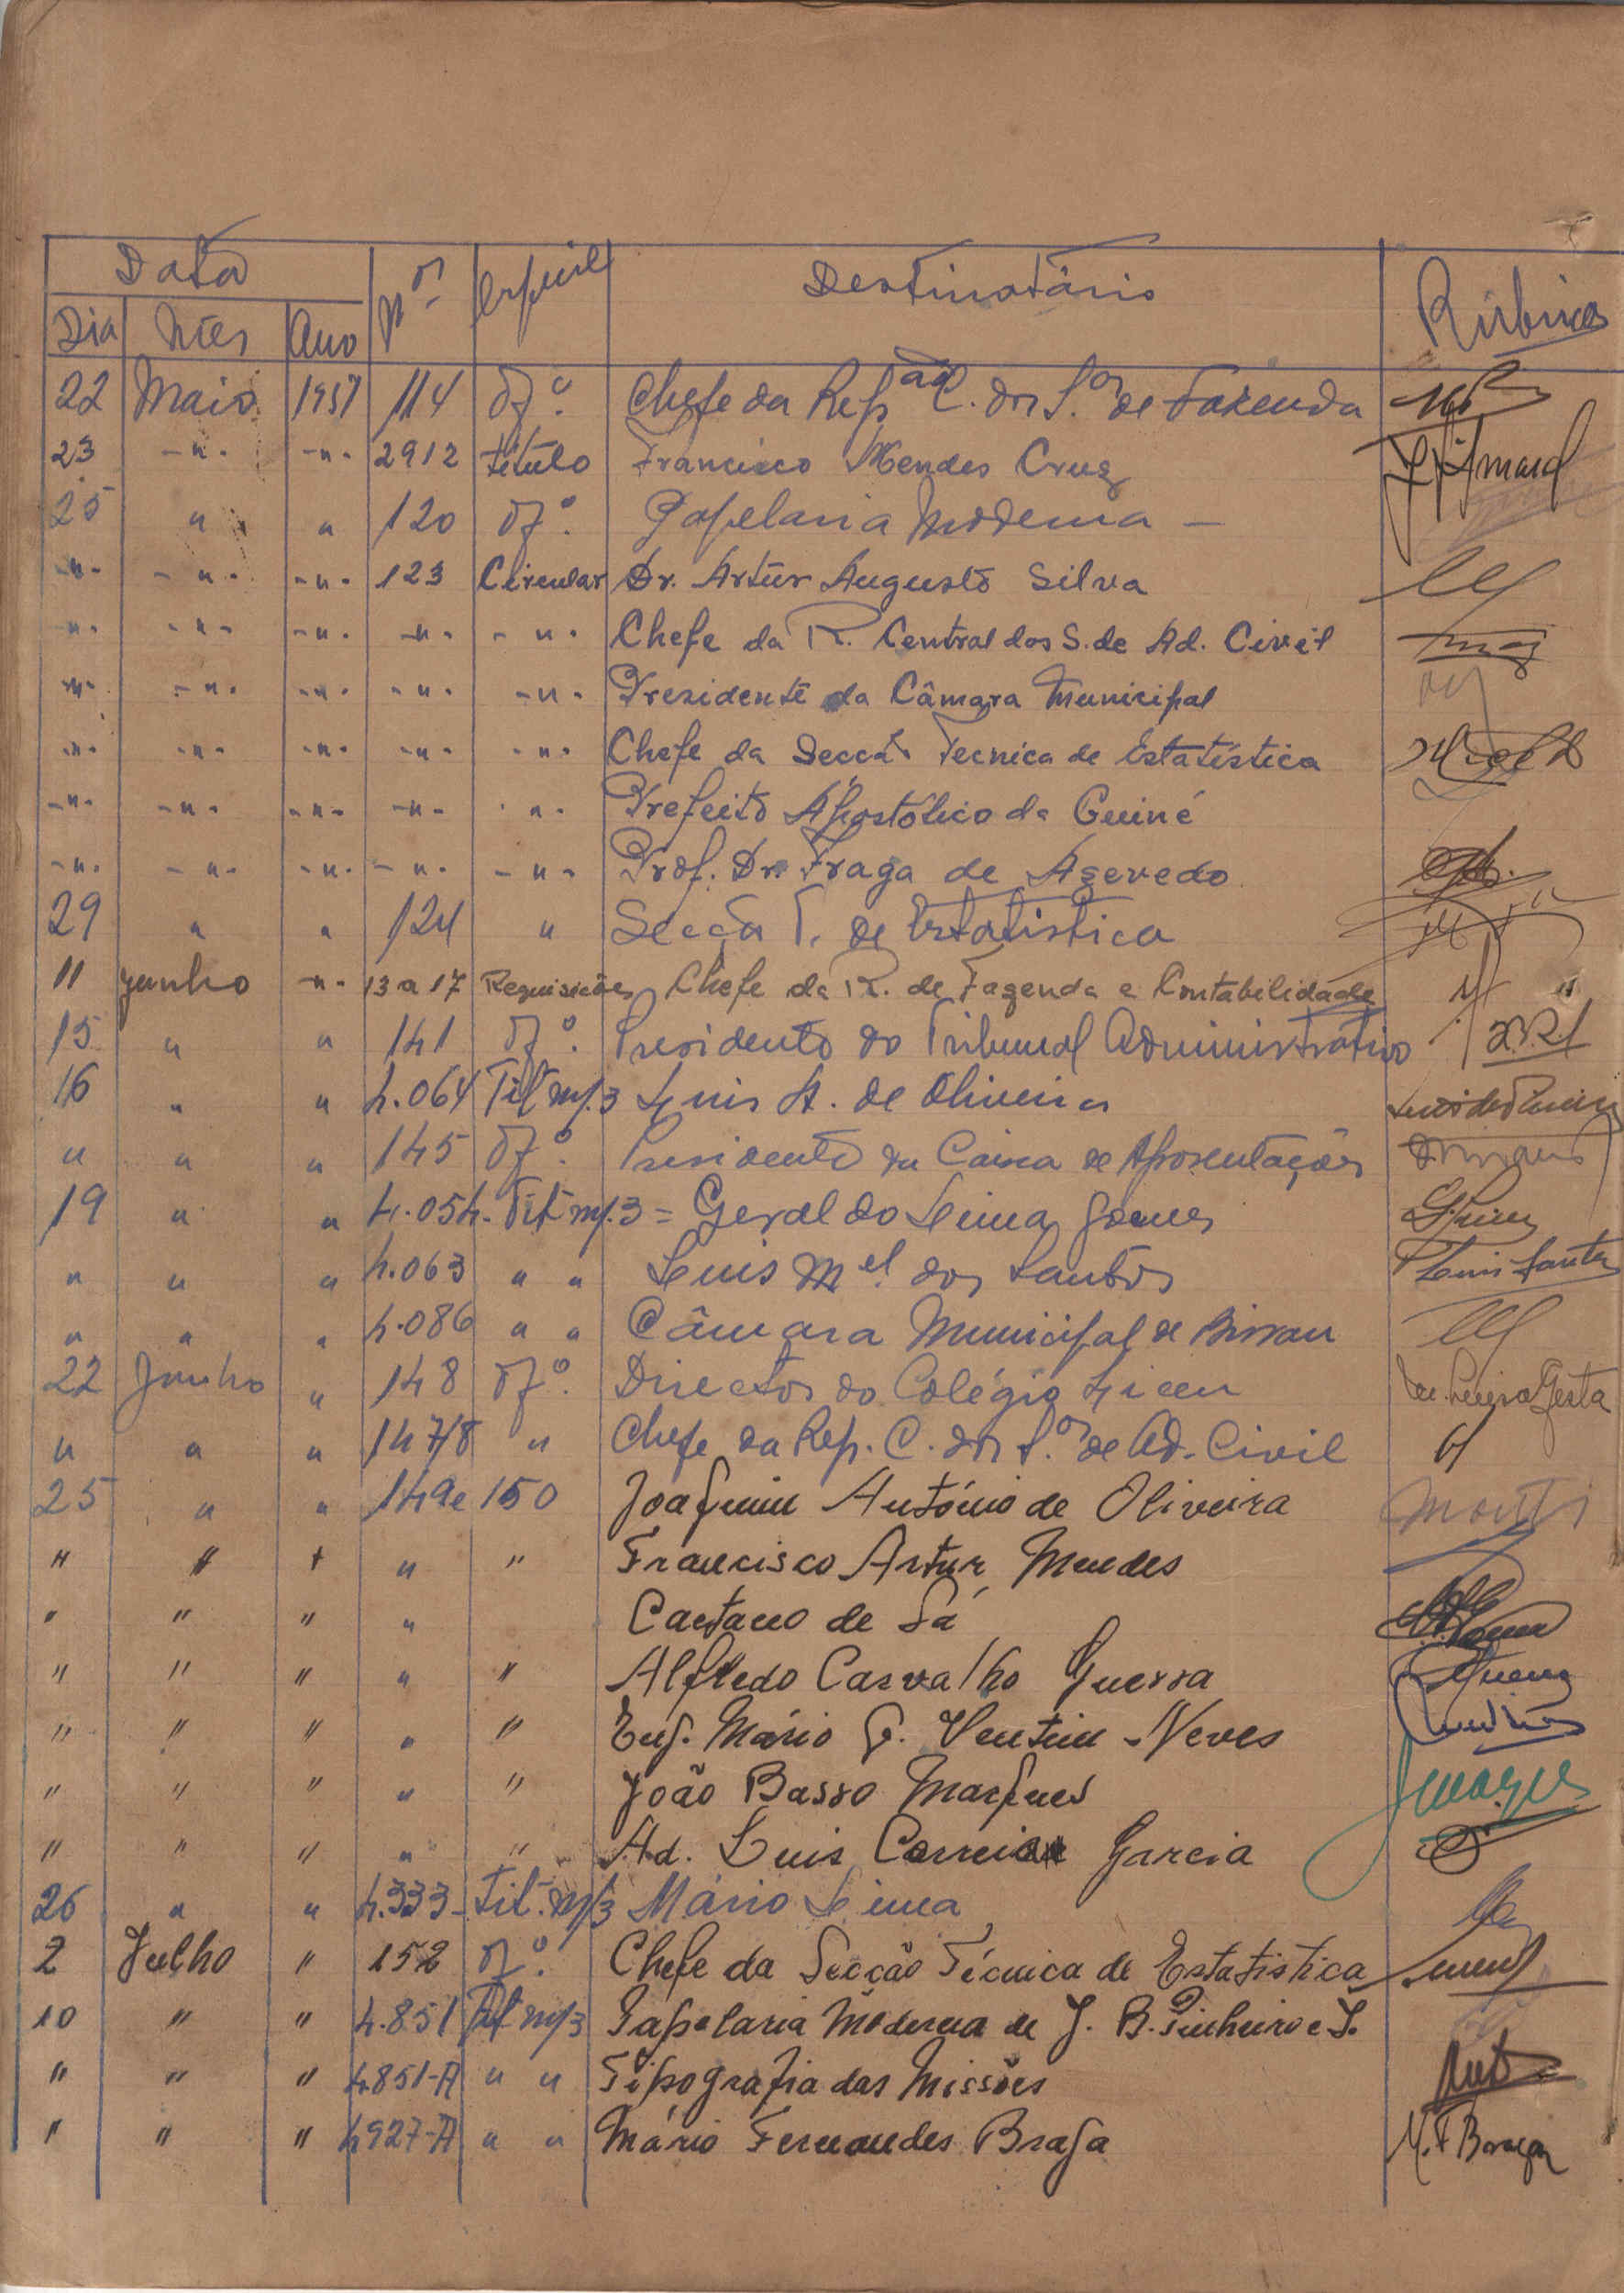 Data Nº Destinatário Rúbrica
Dia Mês Ano
22 Maio 1957 114 Ofº. Chefe da Repão C. dos S.os de Fazenda
23 -"- -"- 2912 título Francisco Mendes Cruz
25 " " 120 Ofº. Papelaria Moderna —
-"- -"- -"- 123 Circular Dr. Artur Augusto Silva
-"- -"- -"- -"- -"- Chefe da R. Central dos S. de Ad. Civil
-"- -"- -"- -"- -"- Presidente da Câmara Municipal
-"- -"- -"- -"- -"- Chefe da Secção Tecnica de Estatística
-"- -"- -"- -"- -"- Prefeito Apostólico da Guiné
-"- -"- -"- -"- -"- Prof. Dr. Fraga de Azevedo
29 " " 124 " Secção T. de Estatistica
11 Junho -"- 13 a 17 Requisições Chefe da R. de Fazenda e Contabilidade
15 " " 141 Ofº. Presidente do Tribunal Administrativo
16 " " 4.064 Tit m/3 Luis A. de Oliveira
" " " 145 Ofº. Presidente da Caixa de Aposentações
19 " " 4.054- Tit m/.3 = Geraldo Lima Gomes
" " " 4.063 " " Luis Mel. dos Santos Luis Santos
" " " 4.086 " " Câmara Municipal de Bissau
22 Junho " 148 Ofº. Director do Colégio Liceu
" " " 147/8 " Chefe da Rep. C. dos S.os de Ad. Civil
25 " " 149 e 150 Joaquim António de Oliveira
" " " " " Francisco Artur Mendes
" " " " Caetano de Sá
" " " " " Alfredo Carvalho Guerra
" " " " " Eng. Mário G. Ventim Neves
" " " " " João Basso Marques
" " " " " Ad. Luis Correia Garcia
26 " " 4.333- Tit. m/3 Mário Lima
2 Julho " 152 Ofº. Chefe da Secção Técnica de Estatistica
10 " " 4.851 Tit m/3 Papelaria Moderna de J. B. Pinheiro e S.
" " " 4851-A " " Tipografia das Missões
" " " 4927-A " " Mário Fernandes Braga M. F Braga